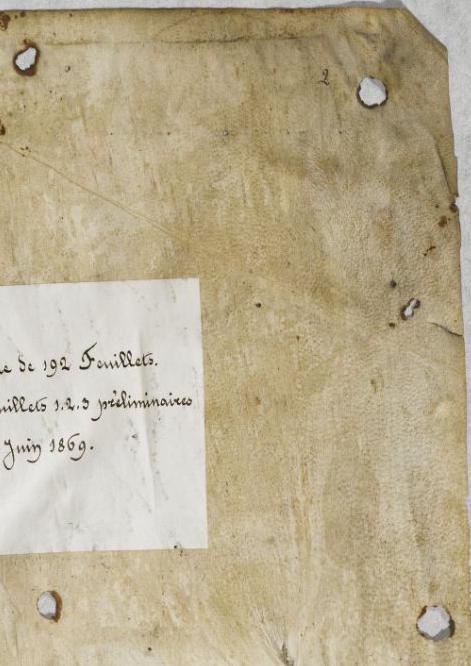 2
e de 192 Feuillets.
uillets 1.2.3 préliminaires
Juin 1869.